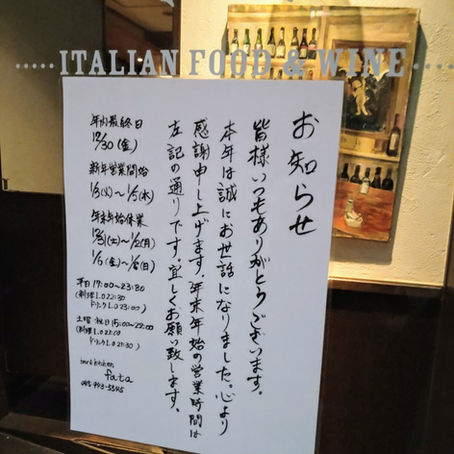 ITALIAN FOOD & WINE
お知らせ
皆様いつもありがとうございます。
本年は誠にお世話になりました。心より
感謝申し上げます。年末年始の営業時間は
左記の通りです。宜しくお願い致します。
年内最終日
12/30(金)
新年営業開始
1/3(火)〜1/5(木)
年末年始休業
12/31(土)〜1/2(月)
1/6(金)〜1/8(日)
平日 17:00〜23:30
(料理L.O 22:30
ドリンクL.O 23:00)
土曜・祝日 15:00〜22:00
(料理L.O
ドリンクL.O 21:30)
bar & kitchen
fata